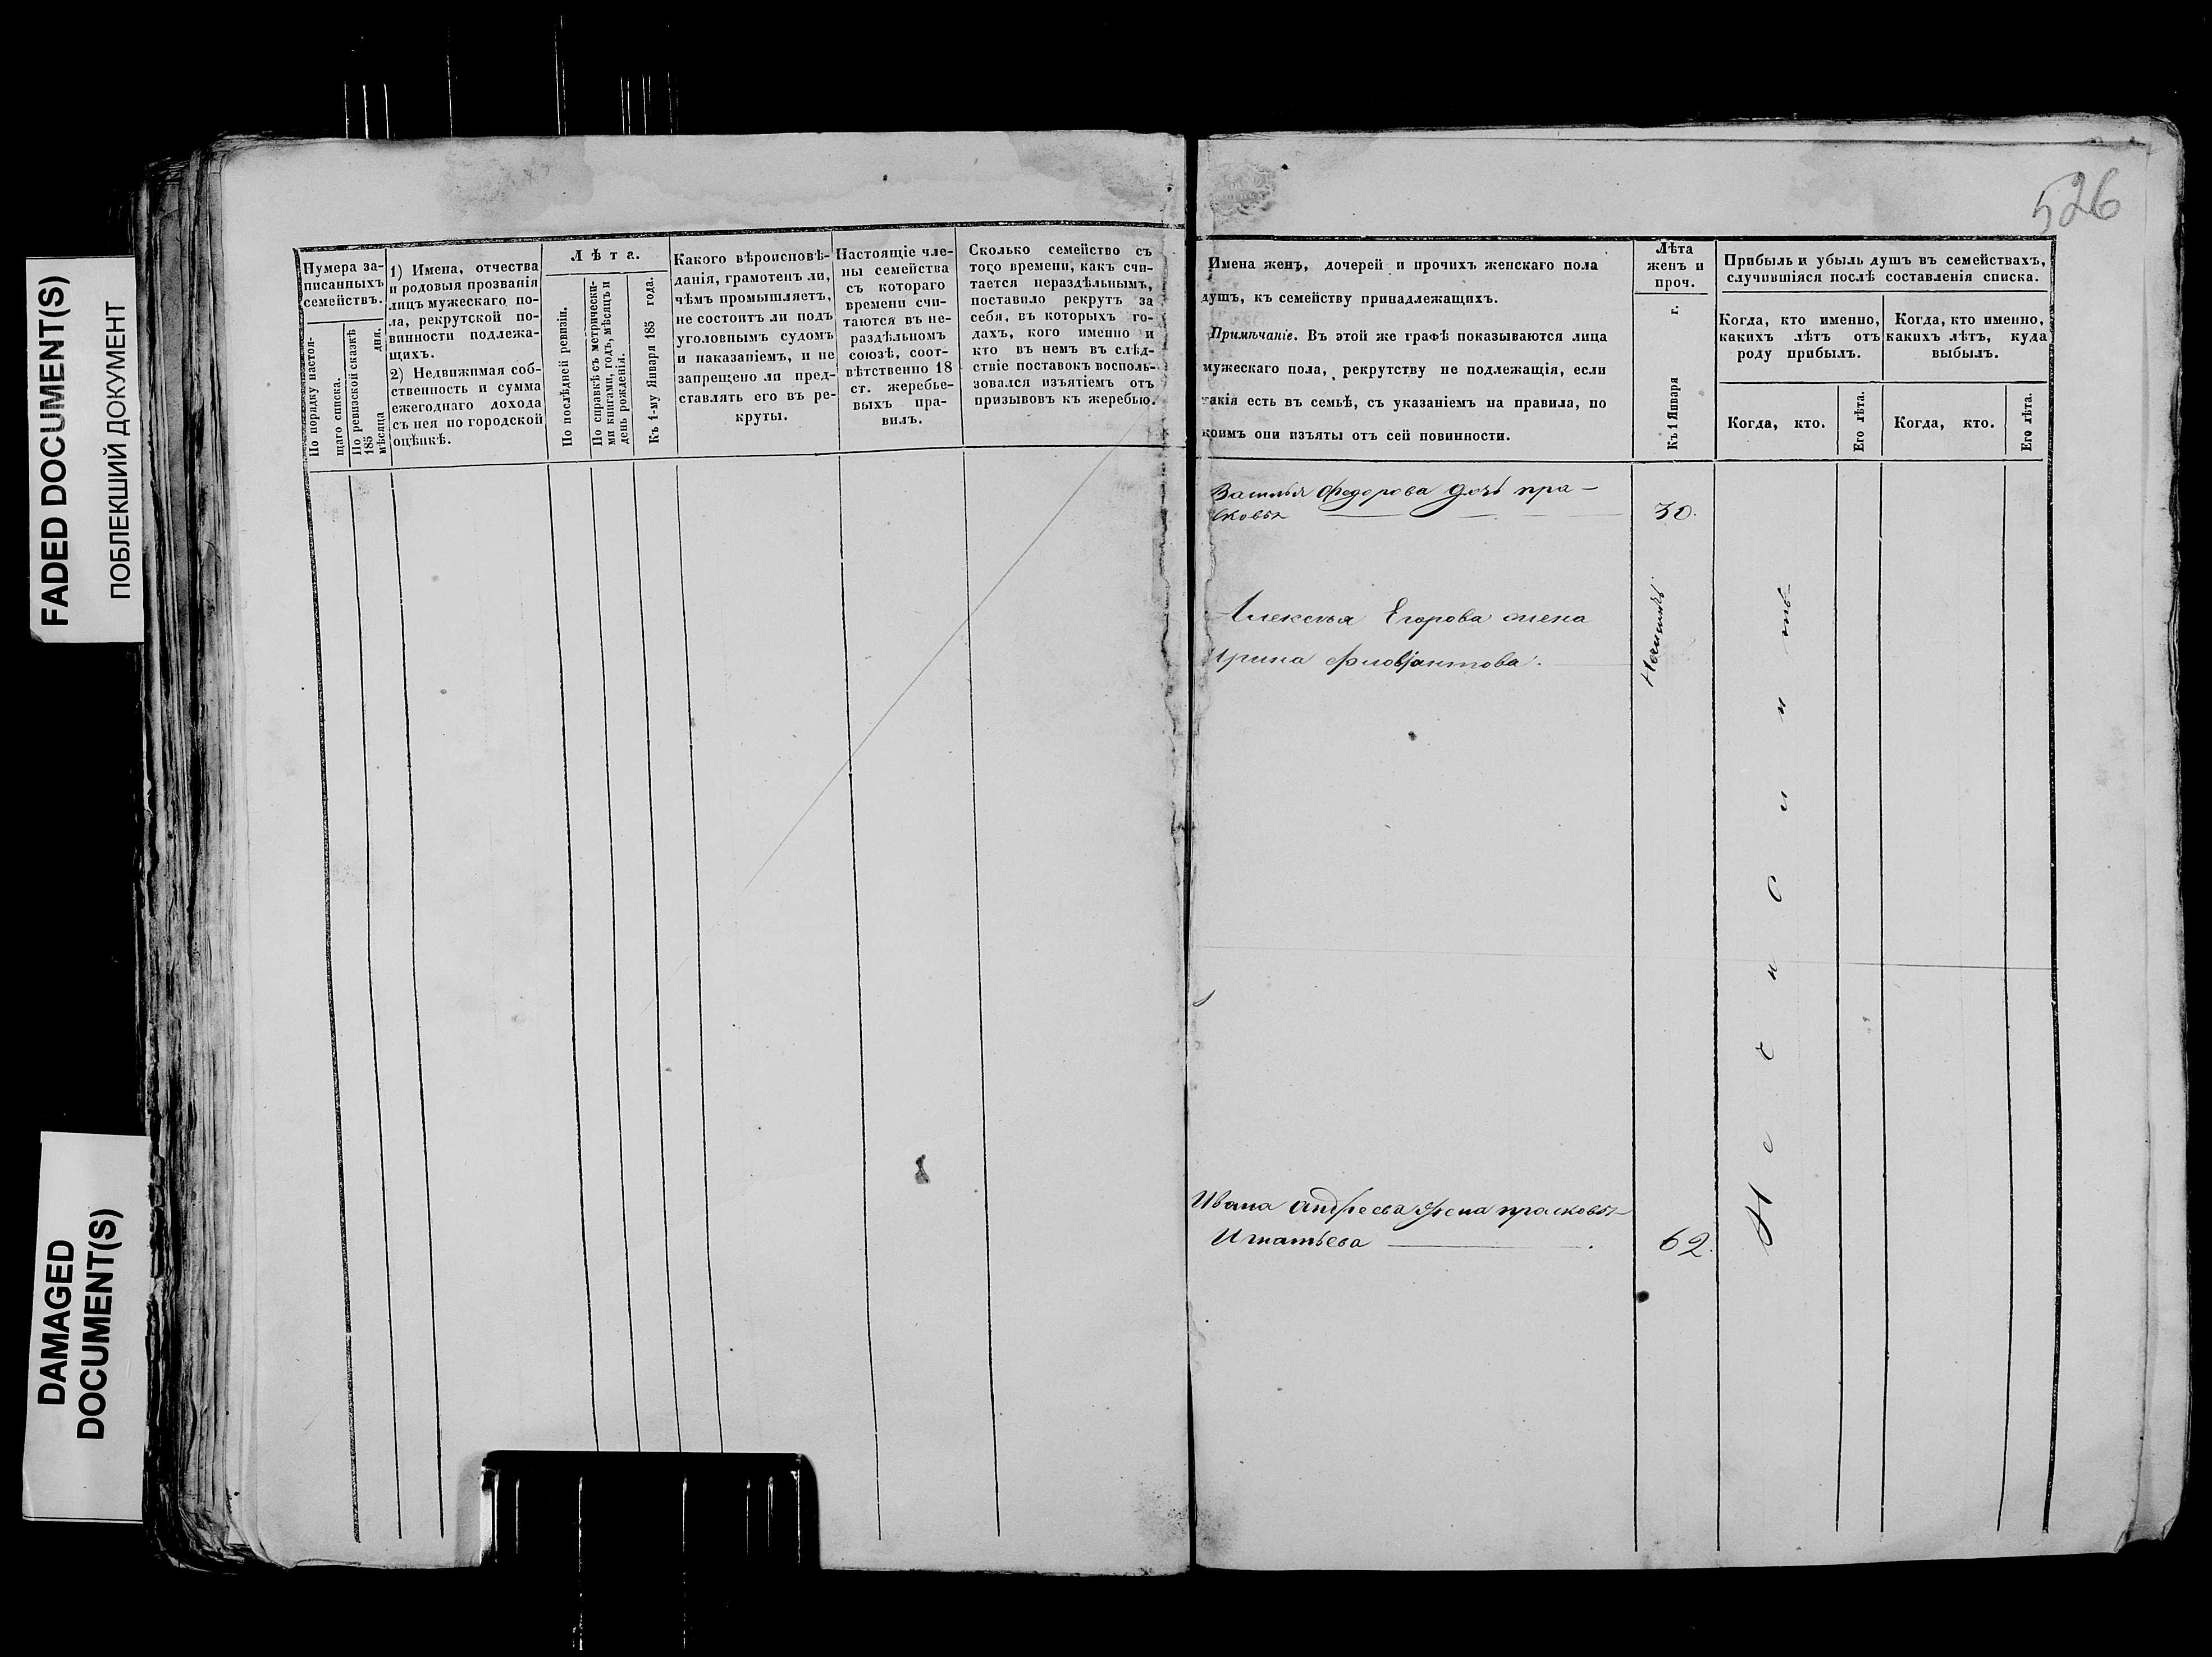 FADED DOCUMENT(S)
ПОБЛЕКШИЙ ДОКУМЕНТ
DAMAGED
DOCUMENT(S)
Нумера за-
писанныхъ
семействъ.
По порядку настоя-
щаго списка.
По ревизской сказкѣ
185 дня.
мѣсяца
1) Имена, отчества
и родовыя прозванія
лицъ мужескаго по-
ла, рекрутской по-
винности подлежа-
щихъ.
2) Недвижимая соб-
ственность и сумма
ежегоднаго дохода
съ нея по городской
оцѣнкѣ.
Лѣта.
По послѣдней ревизіи.
По справкѣ съ метрически-
ми книгами, годъ, мѣсяцъ и
день рожденія.
Къ 1-му Января 185 года.
Какого вѣроисповѣ-
данія, грамотенъ ли,
чѣмъ промышляетъ,
не состоитъ ли подъ
уголовнымъ судомъ
и наказаніемъ, и не
запрещено ли пред-
ставлять его въ ре-
круты.
Настоящіе чле-
ны семейства
съ котораго
времени счи-
таются въ не-
раздѣльномъ
союзѣ, соот-
вѣтственно 18
ст. жеребье-
выхъ пра-
вилъ.
Сколько семейство съ
того времени, какъ счи-
тается нераздѣльнымъ,
поставило рекрутъ за
себя, въ которыхъ го-
дахъ, кого именно и
кто въ немъ въ слѣд-
ствіе поставокъ восполь-
зовался изъятіемъ отъ
призывовъ къ жеребью.
526
Имена женъ, дочерей и прочихъ женскаго пола
душъ, къ семейству принадлежащихъ.
Примѣчаніе. Въ этой же графѣ показываются лица
мужескаго пола, рекрутству не подлежащія, если
такія есть въ семьѣ, съ указаніемъ на правила, по
коимъ они изъяты отъ сей повинности.
Лѣта
женъ и
проч.
Къ 1 Января г.
Прибыль и убыль душъ въ семействахъ,
случившіяся послѣ составленія списка.
Когда, кто именно,
какихъ лѣтъ отъ
роду прибылъ.
Когда, кто именно,
какихъ лѣтъ, куда
выбылъ.
Когда, кто.
Его лѣта.
Когда, кто.
Его лѣта.
Василья Федорова дочь пра-
сковья 30.
Алексѣя Егорова жена
Ирина
Ивана Андреева жена прасковья
Игнатьева 62.